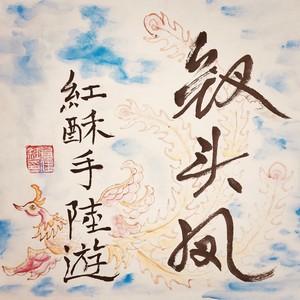 钗头凤
紅酥手陸遊